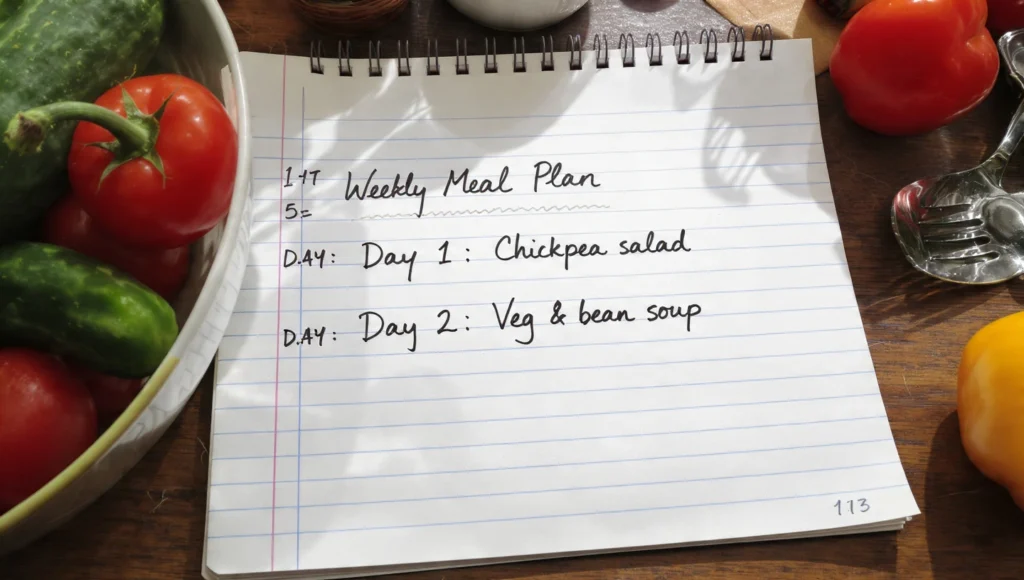 1-17 Weekly Meal Plan
5=
D.AY: Day 1: Chickpea salad
D.AY: Day 2: Veg & bean soup
113